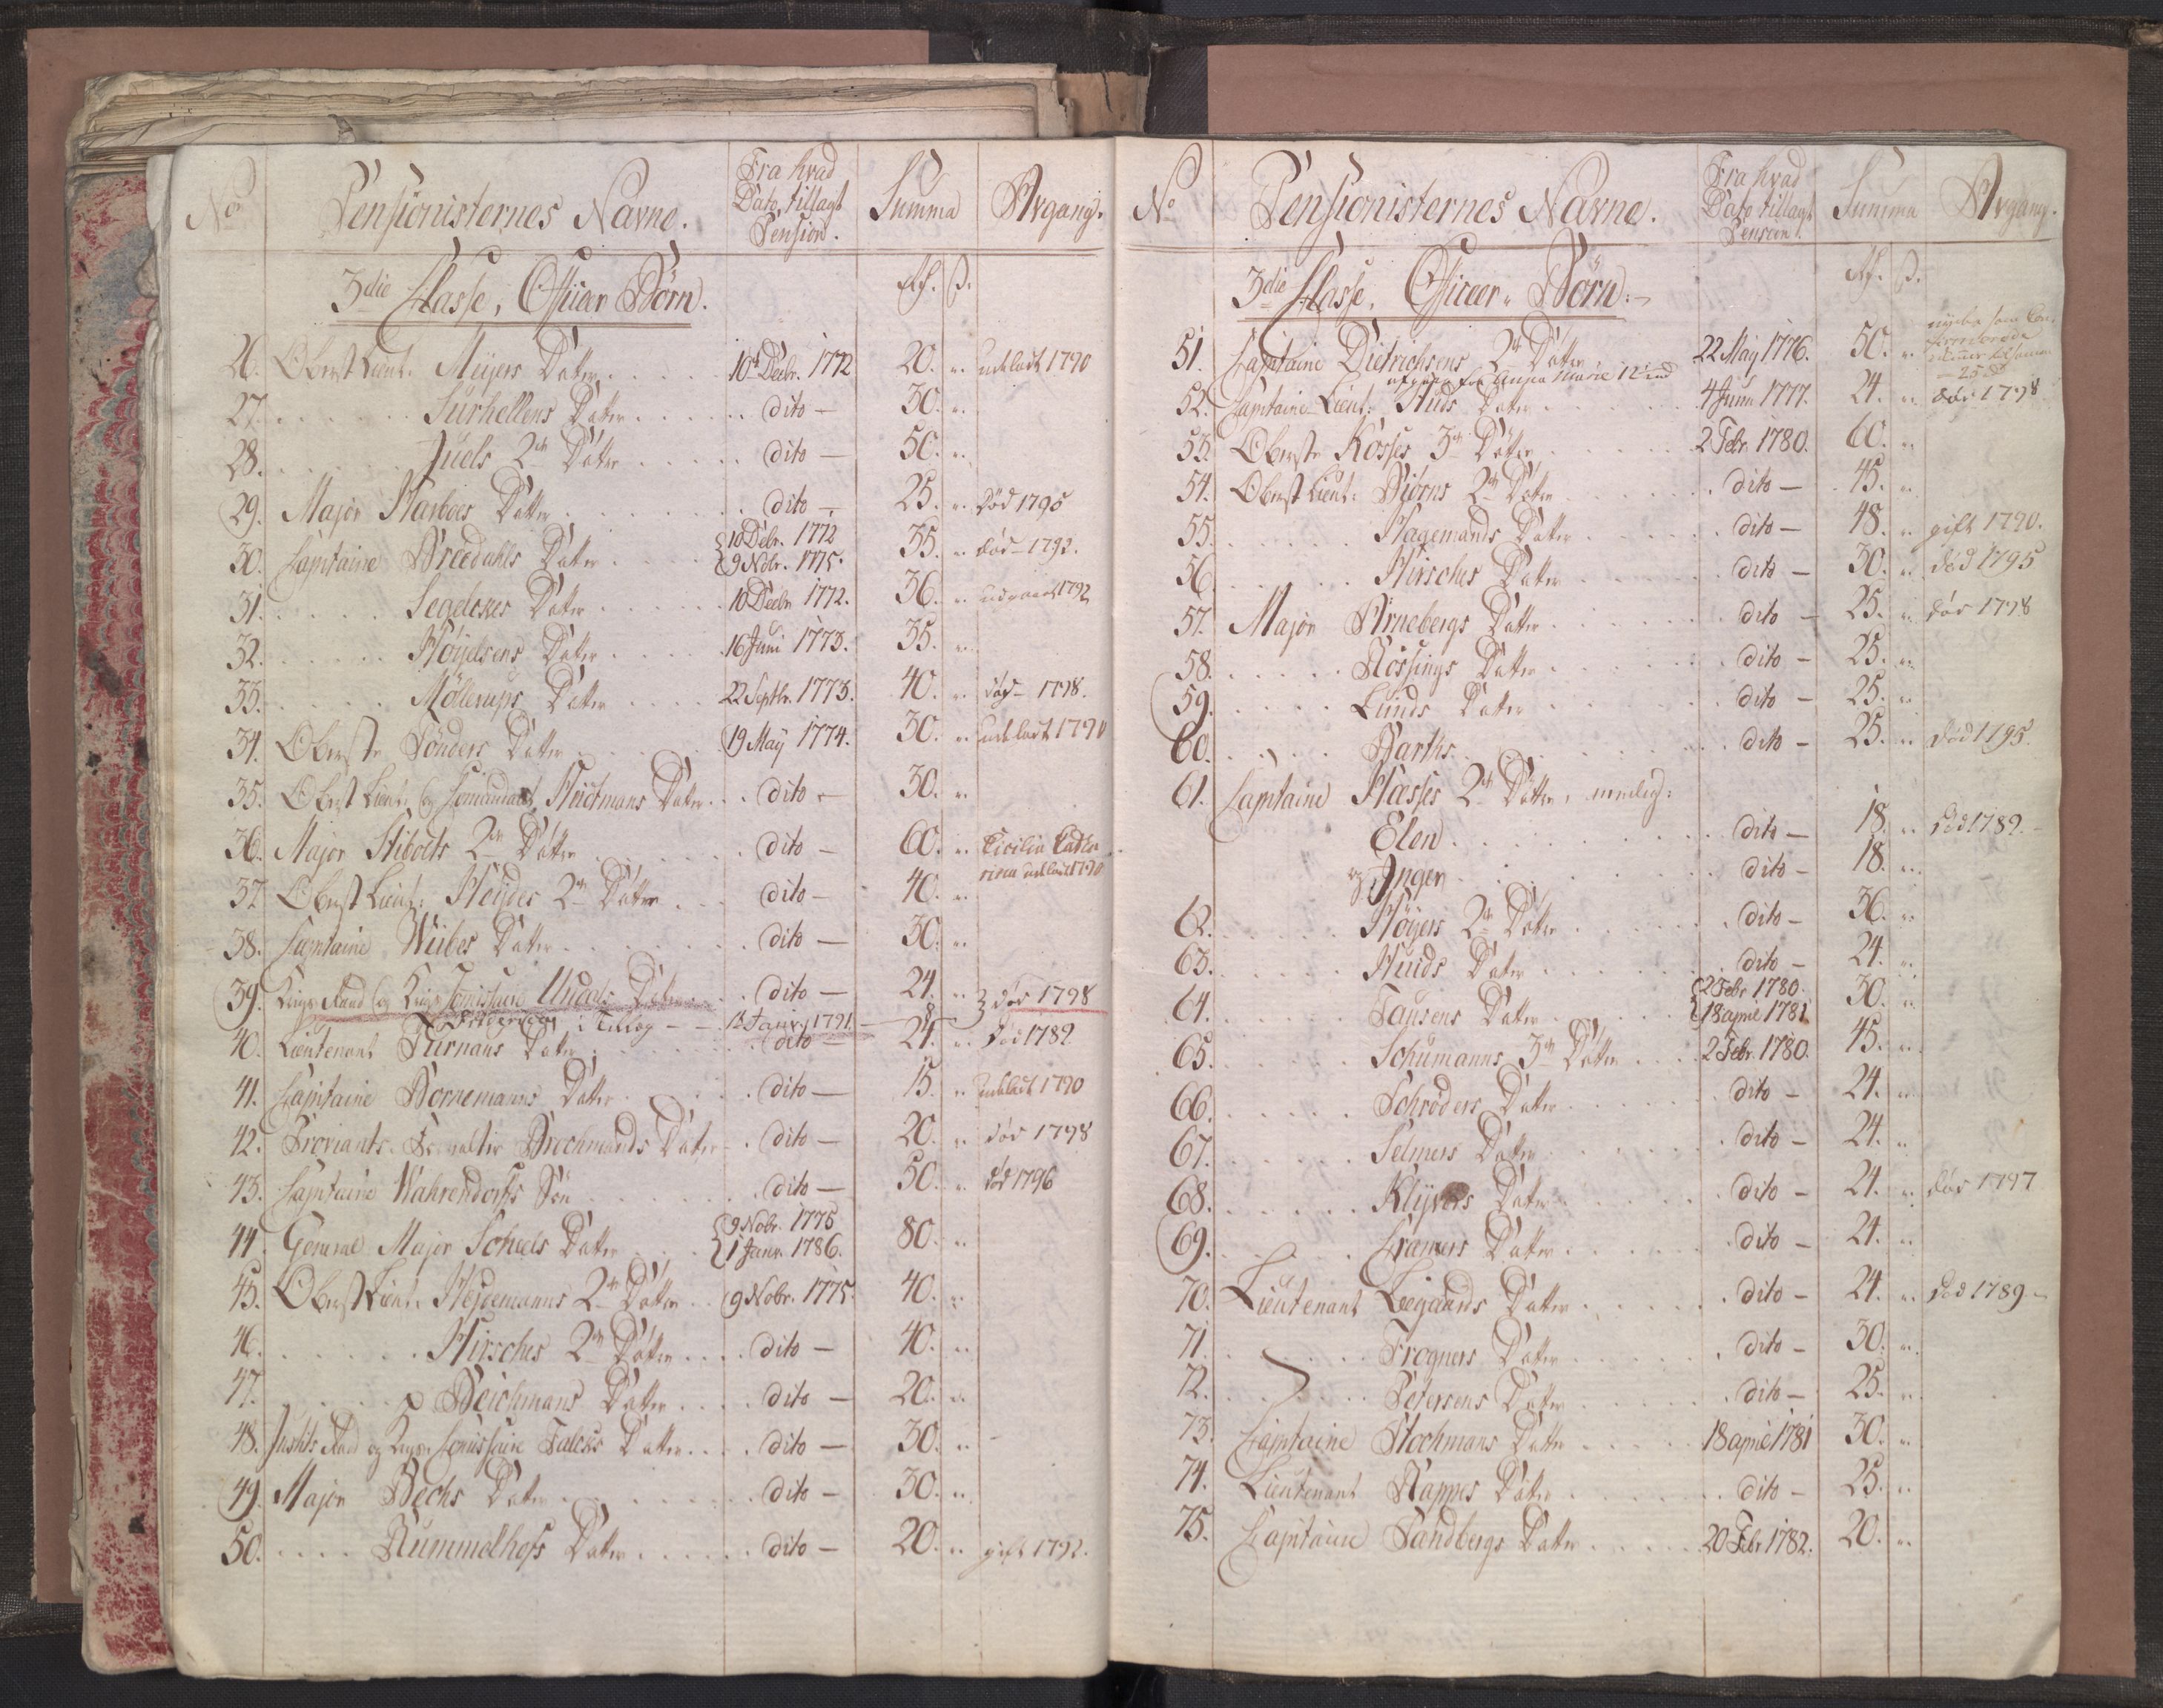 No Pensionisternes Navne. Fra hvad Dato, tillagt Pension. Summa Afgang.
3die Classe, Officeer Börn. Rd. ß.
26. Oberst Lieut: Meÿers Datter 10de Decbr. 1772 20. " udeladt 1790
27. Surhellens Datter dito — 30. "
28. Juels 2de Döttre dito — 50. "
29. Major Harboes Datter dito — 25. " Död 1795
30. Capitaine Breedahls Datter {10 Decbr. 1772 {9 Nobr. 1775. 35. " död 1792.
31. Segelckes Datter 10 Decbr. 1772. 36. " 1792
32. Höÿelsens Datter 16 Juni 1773. 35. "
33. Möllerups Datter 22 Septbr. 1773. 40. " död 1798.
34. Oberste Sönders Datter 19 Maÿ 1774. 30. " udeladt 1790
35. Oberst Lieut: og Comandant Heidtmans Datter dito — 30. "
36. Major Stibolts 2de Döttre dito — 60. " Cicilia
udeladt 1790
37. Oberst Lieut: Heÿdes 2de Döttre dito — 40. "
38. Capitaine Wiibes Datter dito — 30. "
39. Krigs Raad og Krigs Comissaire Undals Datter dito — 24. " død 1798
i Tillæg — 1ste Janv. 1791 — 8
40. Lieutenant Furnans Datter dito — 24. " Död 1789
41. Capitaine Bornemanns Datter dito — 15. " udeladt 1790
42. Proviants-Forvalter Brochmands Datter dito — 20. " död 1798
43. Capitaine Wahrendorfs Sön dito — 50. " død 1796
44. General Major Scheels Datter {9 Nobr. 1775 {1 Janr. 1786. 80. "
45. Oberst Lieut: Heÿdemanns 2de Döttre 9 Nobr. 1775. 40. "
46. Hirsches 2de Döttre dito — 40. "
47. Beichmans Datter dito — 20. "
48. Justits Raad og Krigs Comissaire Falcks Datter dito — 30. "
49. Major Bechs Datter dito — 30. "
50. Rummelhofs Datter dito — 20. " gift 1792.
No Pensionisternes Navne. Fra hvad Dato tillagt Pension. Summa Afgang.
3die Classe, Officeer Börn. Rd. ß.
51. Capitaine Dietrichsens 2de Döttre 22 Maÿ 1776. 50. "
afgaaet for Anna Marie 25
52. Capitaine Lieut: Huds Datter 4 Juni 1777. 24. " död 1798
53. Oberste Kosses 3de Döttre 2 Febr. 1780. 60. "
54. Oberst Lieut: Biörns 2de Döttre dito — 45. "
55. Hagemands Datter dito — 48. " gift 1790.
56. Hirsches Datter dito — 30. " död 1795
57. Major Arnebergs Datter dito — 25. " död 1798
58. Rössings Datter dito — 25. "
59. Lunds Datter dito — 25. "
60. Barths dito — 25. " Död 1795.
61. Capitaine Hasses 2de Döttre, nemlig:
Elen dito — 18. " Död 1789.
og Inger dito — 18. "
62. Höÿers 2de Döttre dito — 36. "
63. Huids Datter dito — 24. "
64. Fausens Datter {2 Febr. 1780. {18 april 1781 30. "
65. Schumanns 3de Döttre 2 Febr. 1780. 45. "
66. Schröders Datter dito — 24. "
67. Selmers Datter dito — 24. "
68. Klÿvers Datter dito — 24. " död 1797
69. Cramers Datter dito — 24. "
70. Lieutenant Leegaards Datter dito — 24. " Död 1789 —
71. Frogners Datter dito — 30. "
72. Petersens Datter dito — 25. "
73. Capitaine Stochmans Datter 18 april 1781 30. "
74. Lieutenant Rappes Datter dito — 25. "
75. Capitaine Sandbergs Datter 20 Febr. 1782. 20. "